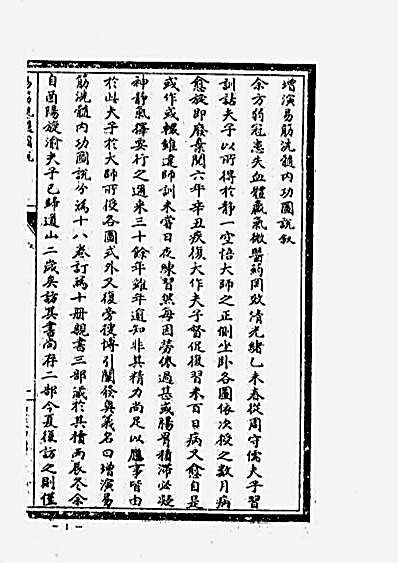 增演易筋洗髓內功圖說敘
余方弱冠患失血體羸氣微醫藥罔效清光緒乙未春從周守儒夫子習
訓詁夫子以所得於靜一空悟大師之正側坐卧各圖依次授之數月病
愈旋即廢棄閱六年辛丑疾復大作夫子督促復習未百日病又愈自是
或作或輟雖違師訓未嘗日夜練習然每因勞倦過甚或腸胃積滯必凝
神靜氣擇要行之通來三十餘年雖年逾知非其精力尚足以應事皆由
於此夫子於大師所授各圖式外又復旁搜博引闡發奧義名曰增演易
筋洗髓內功圖說分為十八卷訂為十冊親書三部藏於其櫝丙辰冬余
自酉陽旋渝夫子已歸道山二歲矣訪其書尚存二部今夏復訪之則僅
易筋洗髓圖說
- 1 -